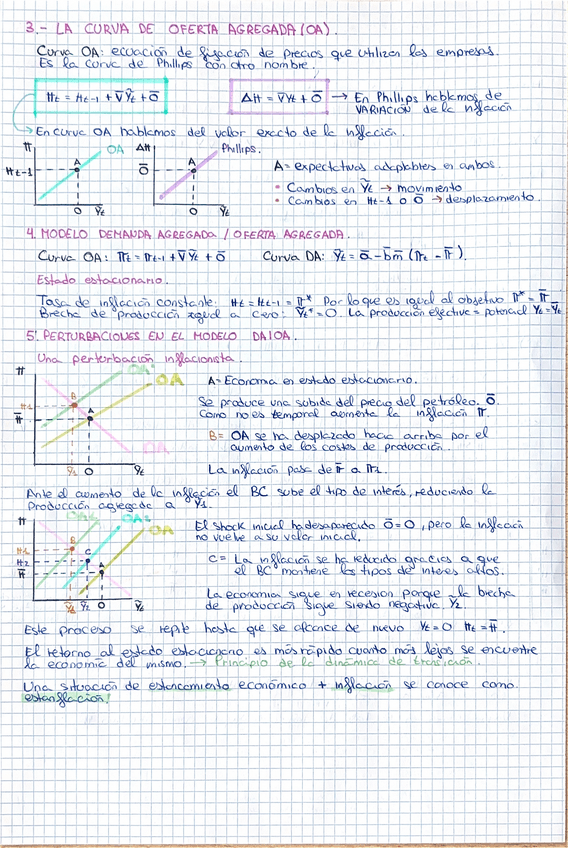 3.- LA CURVA DE OFERTA AGREGADA (OA).
Curva OA: ecuación de fijación de precios que utilizan las empresas.
Es la curva de Phillips con otro nombre.
πt = πt-1 + v̄Ỹt + ō
Δπ = v̄Ỹt + ō → En Phillips hablamos de
VARIACIÓN de la inflación
→ En curva OA hablamos del valor exacto de la inflación.
π OA Δπ Phillips.
πt-1 A ō A
0 Ỹt 0 Ỹt
A = expectativas adaptables en ambos.
• Cambios en Ỹt → movimiento
• Cambios en πt-1 o ō → desplazamiento.
4. MODELO DEMANDA AGREGADA / OFERTA AGREGADA.
Curva OA: πt = πt-1 + v̄Ỹt + ō Curva DA: Ỹt = ā - b̄m̄ (πt - π̄).
Estado estacionario.
Tasa de inflación constante: πt = πt-1 = π* Por lo que es igual al objetivo π* = π̄
Brecha de producción igual a cero: Ỹt* = 0. La producción efectiva = potencial Yt = Ȳt
5. PERTURBACIONES EN EL MODELO DA/OA.
Una perturbación inflacionista.
π OA' OA
π1 B
π̄ A
DA
Ỹ1 0 Ỹt
A = Economía en estado estacionario.
Se produce una subida del precio del petróleo. ō
Como no es temporal aumenta la inflación π
B = OA se ha desplazado hacia arriba por el
aumento de los costes de producción.
La inflación pasa de π̄ a π1.
Ante el aumento de la inflación el BC sube el tipo de interés, reduciendo la
producción agregada a Ỹ1.
π OA1 OA2 OA
π1 B
π2 C
π̄ A
Ỹ1 Ỹ2 0 Ỹt
El shock inicial ha desaparecido ō = 0, pero la inflación
no vuelve a su valor inicial.
C = La inflación se ha reducido gracias a que
el BC mantiene los tipos de interés altos.
La economía sigue en recesión porque la brecha
de producción sigue siendo negativa. Ỹ2.
Este proceso se repite hasta que se alcance de nuevo Ỹt = 0 πt = π̄.
El retorno al estado estacionario es más rápido cuanto más lejos se encuentre
la economía del mismo. → Principio de la dinámica de transición.
Una situación de estancamiento económico + inflación se conoce como
estanflación!